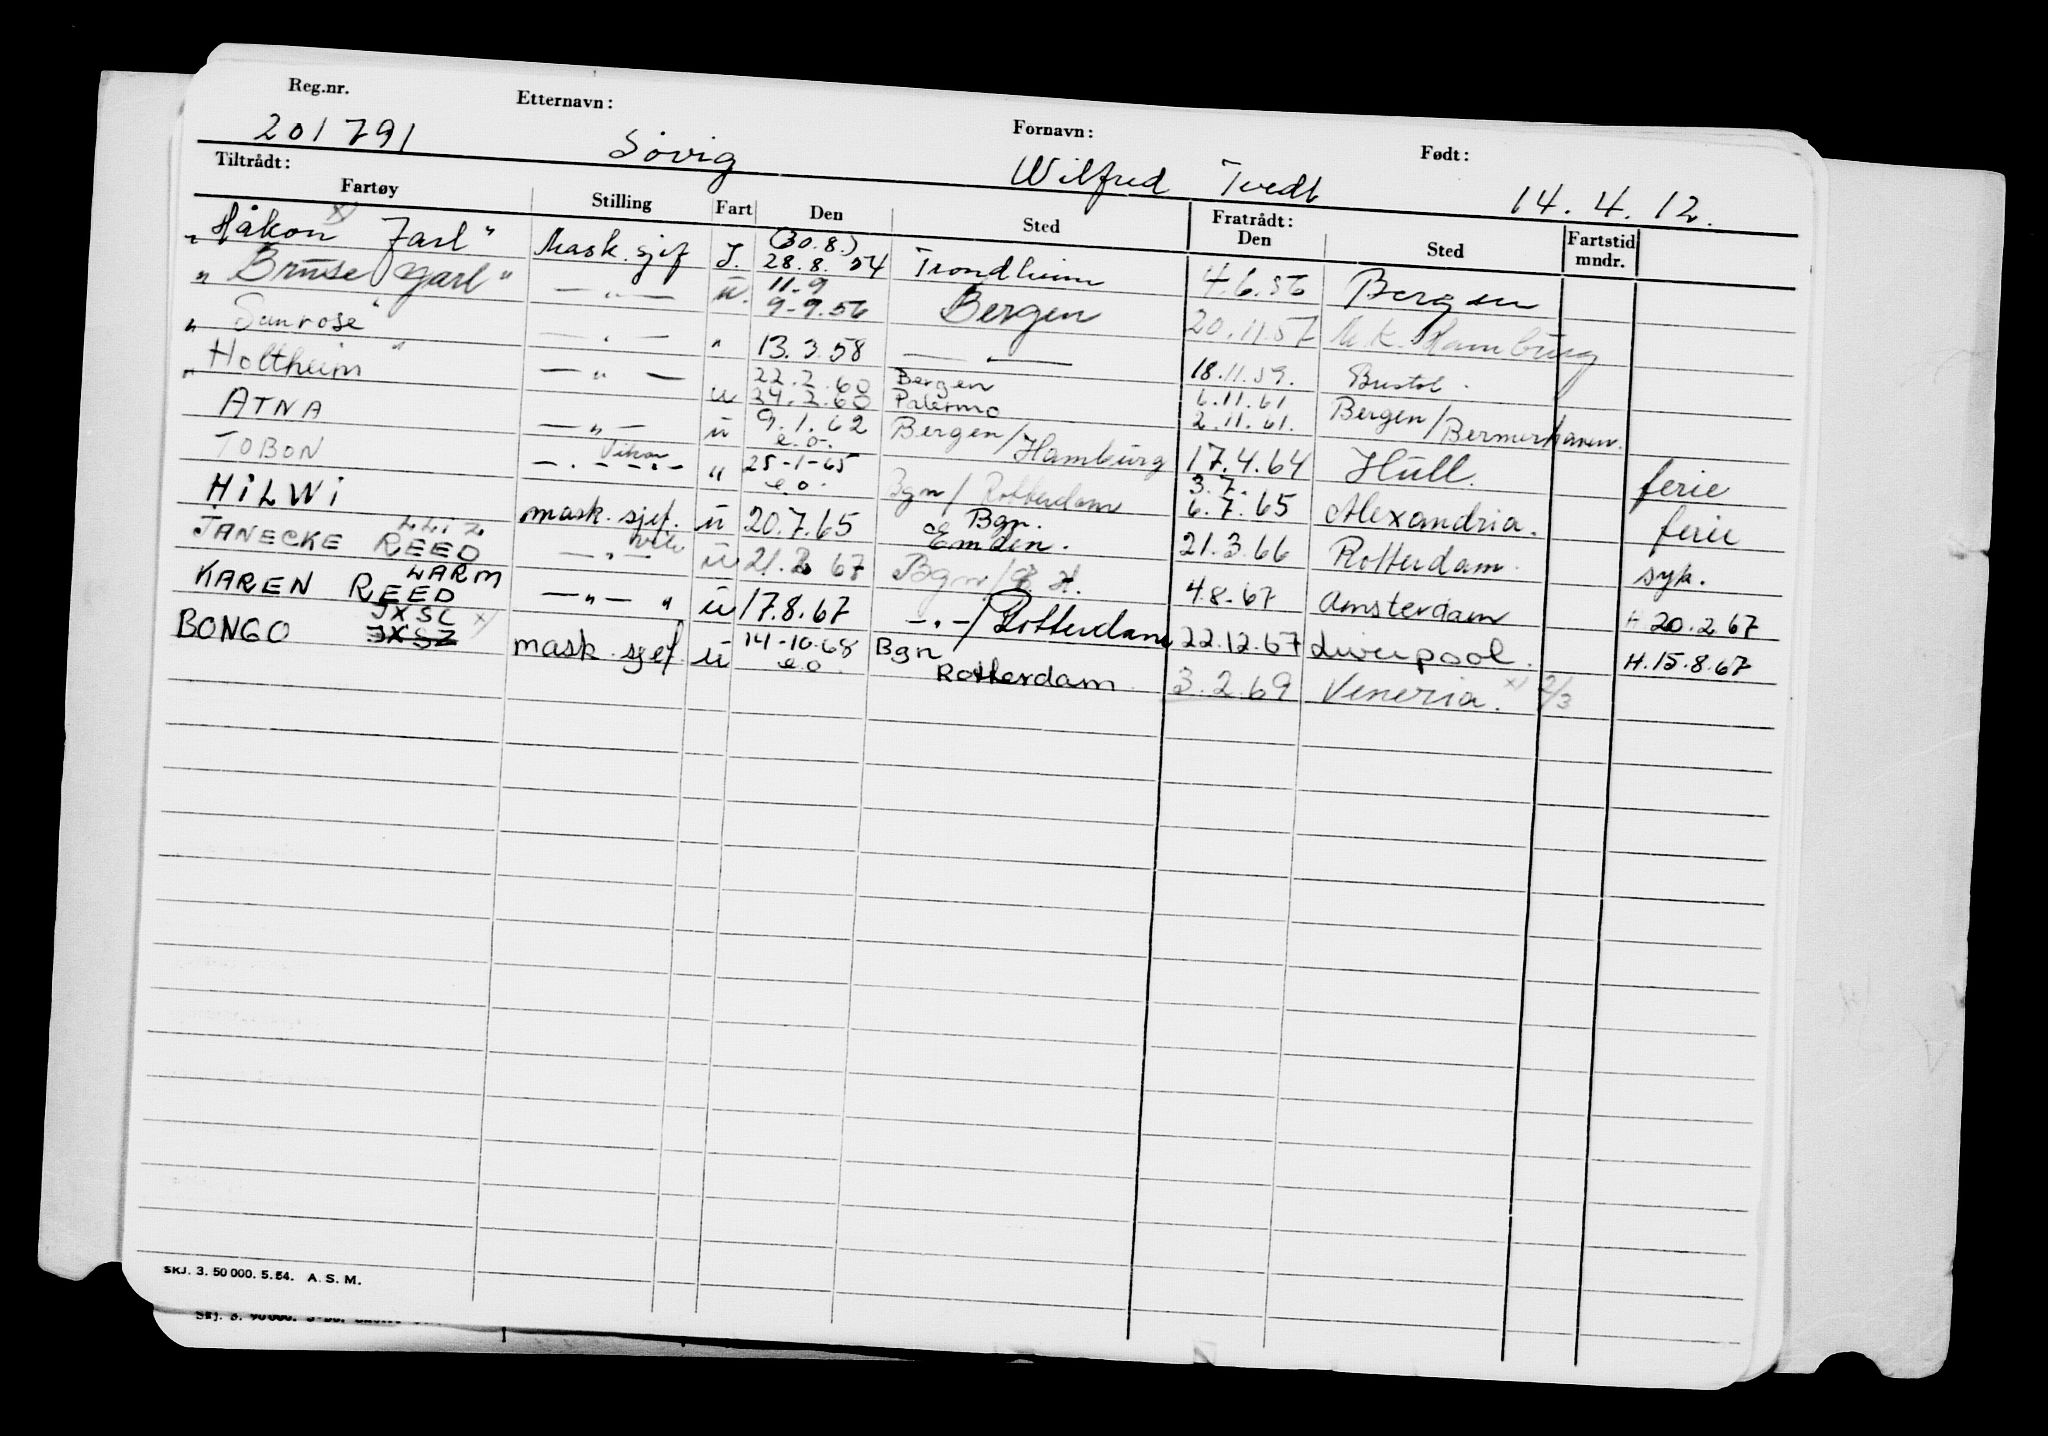 Reg.nr. Etternavn: Fornavn: Født:
201791 Søvig Wilfred Tvedt 14.4.12.
Tiltrådt: Fratrådt:
Fartøy Stilling Fart Den Sted Den Sted Fartstid mndr.
"Håkon Jarl" x) Mask. sjef J. (30.8.) 28.8.54 Trondheim 4.6.56 Bergen
"Bruse Jarl" — " — u. 11.9 9-9.56 Bergen 20.11.57 M.K. Hamburg
"Sunrose" — " — " 13.3.58 — " — 18.11.59. Bristol.
"Holtheim" — " — u 22.2.60 24.2.60 Bergen Palermo 6.11.61 2.11.61. Bergen/Bermerhaven.
ATNA — " — u 9.1.62 e.o. Bergen/Hamburg 17.4.64 Hull. ferie
TOBON — " — Vikar — " — " 25-1-65 e.o. Bgn/Rotterdam 3.7. 6.7.65 Alexandria. ferie
HILWI mask. sjef. u 20.7.65 Bgn. Emden. 21.3.66 Rotterdam. syk.
JANECKE REED LLIZ — " — vik u 21.2.67 Bgn/ 4.8.67 Amsterdam H 20.2.67
KAREN REED LARM — " — " u 17.8.67 — " —/Rotterdam 22.12.67 Liverpool. H.15.8.67
BONGO JXSC JXSZ x) mask. sjef. u 14-10.68 e.o. Bgn Rotterdam. 3.2.69 Veneria. x) 2/3
SKJ. 3. 50 000. 5. 54. A. S. M.
Skj. 3. 90 000.